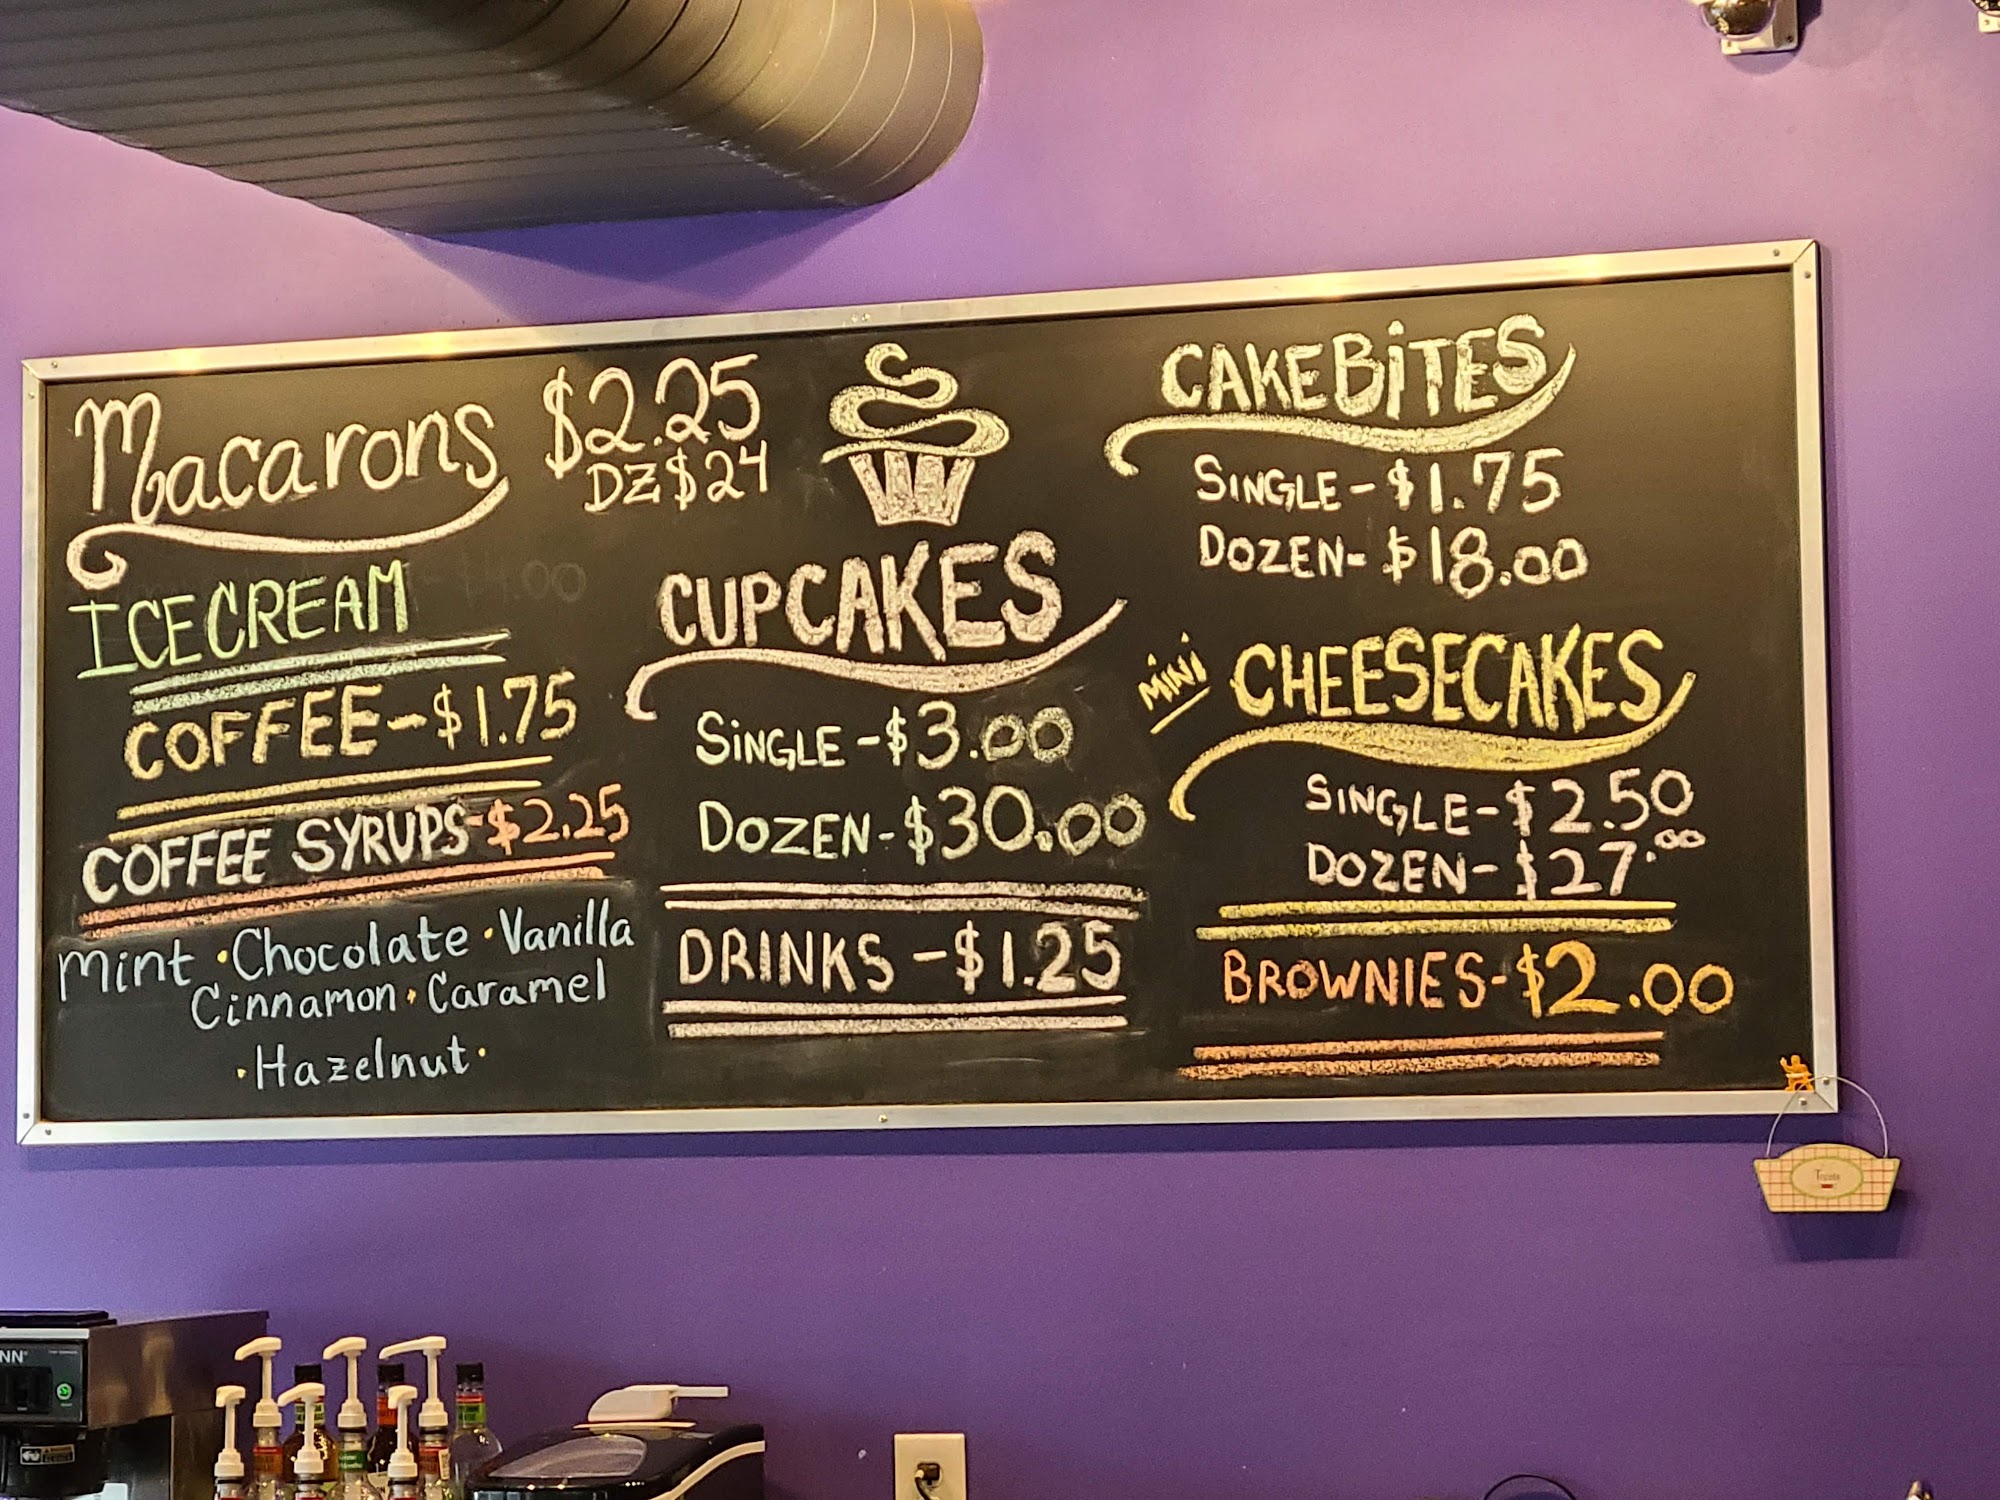 Macarons $2.25
DZ $24
ICE CREAM
COFFEE - $1.75
COFFEE SYRUPS - $2.25
Mint · Chocolate · Vanilla
Cinnamon · Caramel
· Hazelnut ·
CUPCAKES
SiNGLE - $3.00
DOZEN - $30.00
DRINKS - $1.25
CAKEBiTES
SINGLE - $1.75
DOZEN - $18.00
MiNi CHEESECAKES
SINGLE - $2.50
DOZEN - $27.00
BROWNIES - $2.00
Treats
NN